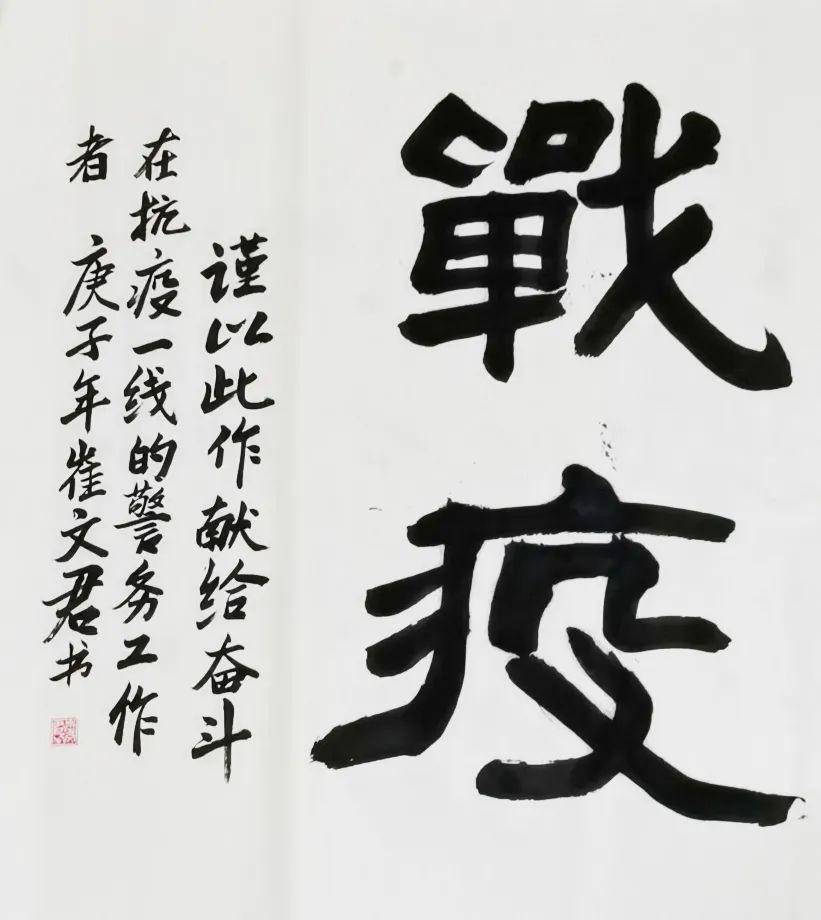 戰疫
谨以此作献给奋斗
在抗疫一线的警务工作
者 庚子年崔文君书